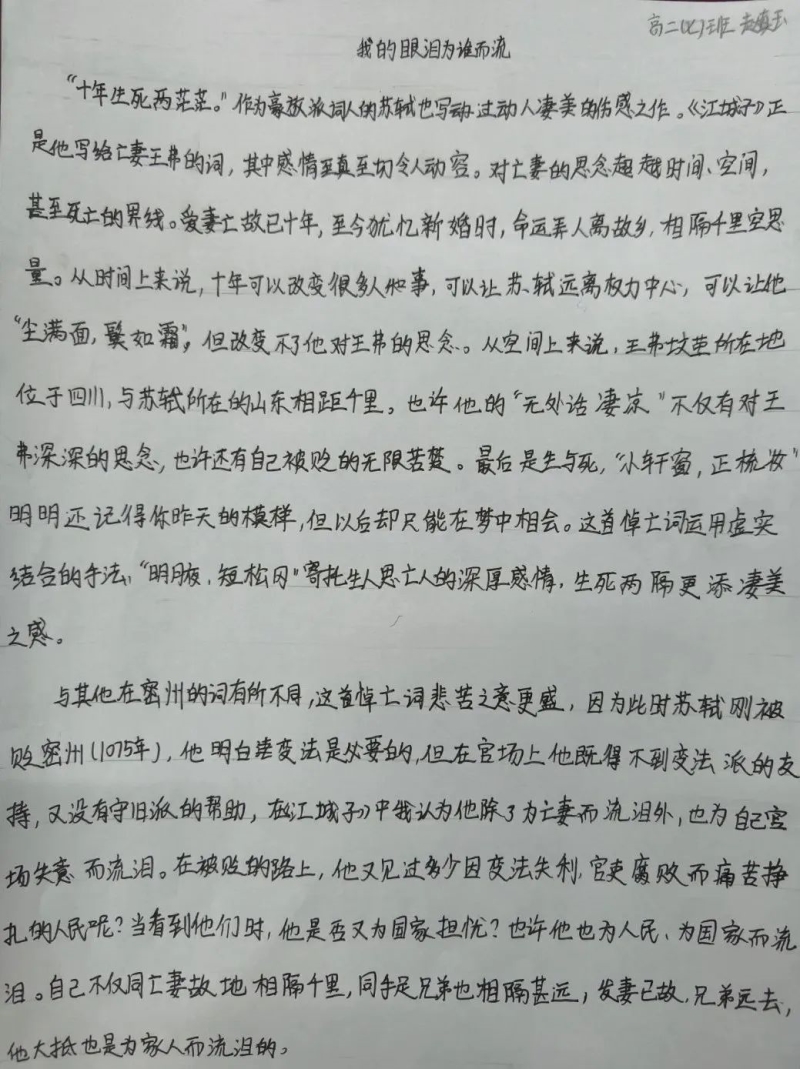 高二(七)班
我的眼泪为谁而流
“十年生死两茫茫。”作为豪放派词人的苏轼也写动过动人凄美的伤感之作。《江城子》正
是他写给亡妻王弗的词，其中感情至真至切令人动容。对亡妻的思念超越时间、空间，
甚至死亡的界线。爱妻亡故已十年，至今犹忆新婚时，命运弄人离故乡，相隔千里空思
量。从时间上来说，十年可以改变很多人和事，可以让苏轼远离权力中心，可以让他
“尘满面，鬓如霜”，但改变不了他对王弗的思念。从空间上来说，王弗坟茔所在地
位于四川，与苏轼所在的山东相距千里。也许他的“无处话凄凉”不仅有对王
弗深深的思念，也许还有自己被贬的无限苦楚。最后是生与死，“小轩窗，正梳妆”
明明还记得你昨天的模样，但以后却只能在梦中相会。这首悼亡词运用虚实
结合的手法，“明月夜，短松冈”寄托生人思亡人的深厚感情，生死两隔更添凄美
之感。
与其他在密州的词有所不同，这首悼亡词悲苦之意更盛，因为此时苏轼刚被
贬密州(1075年)，他明白变法是必要的，但在官场上他既得不到变法派的支
持，又没有守旧派的帮助，在《江城子》中我认为他除了为亡妻而流泪外，也为自己官
场失意而流泪。在被贬的路上，他又见过多少因变法失利，官吏腐败而痛苦挣
扎的人民呢？当看到他们时，他是否又为国家担忧？也许他也为人民、为国家而流
泪。自己不仅同亡妻故地相隔千里，同手足兄弟也相隔甚远，发妻已故，兄弟远去，
他大抵也是为家人而流泪的。